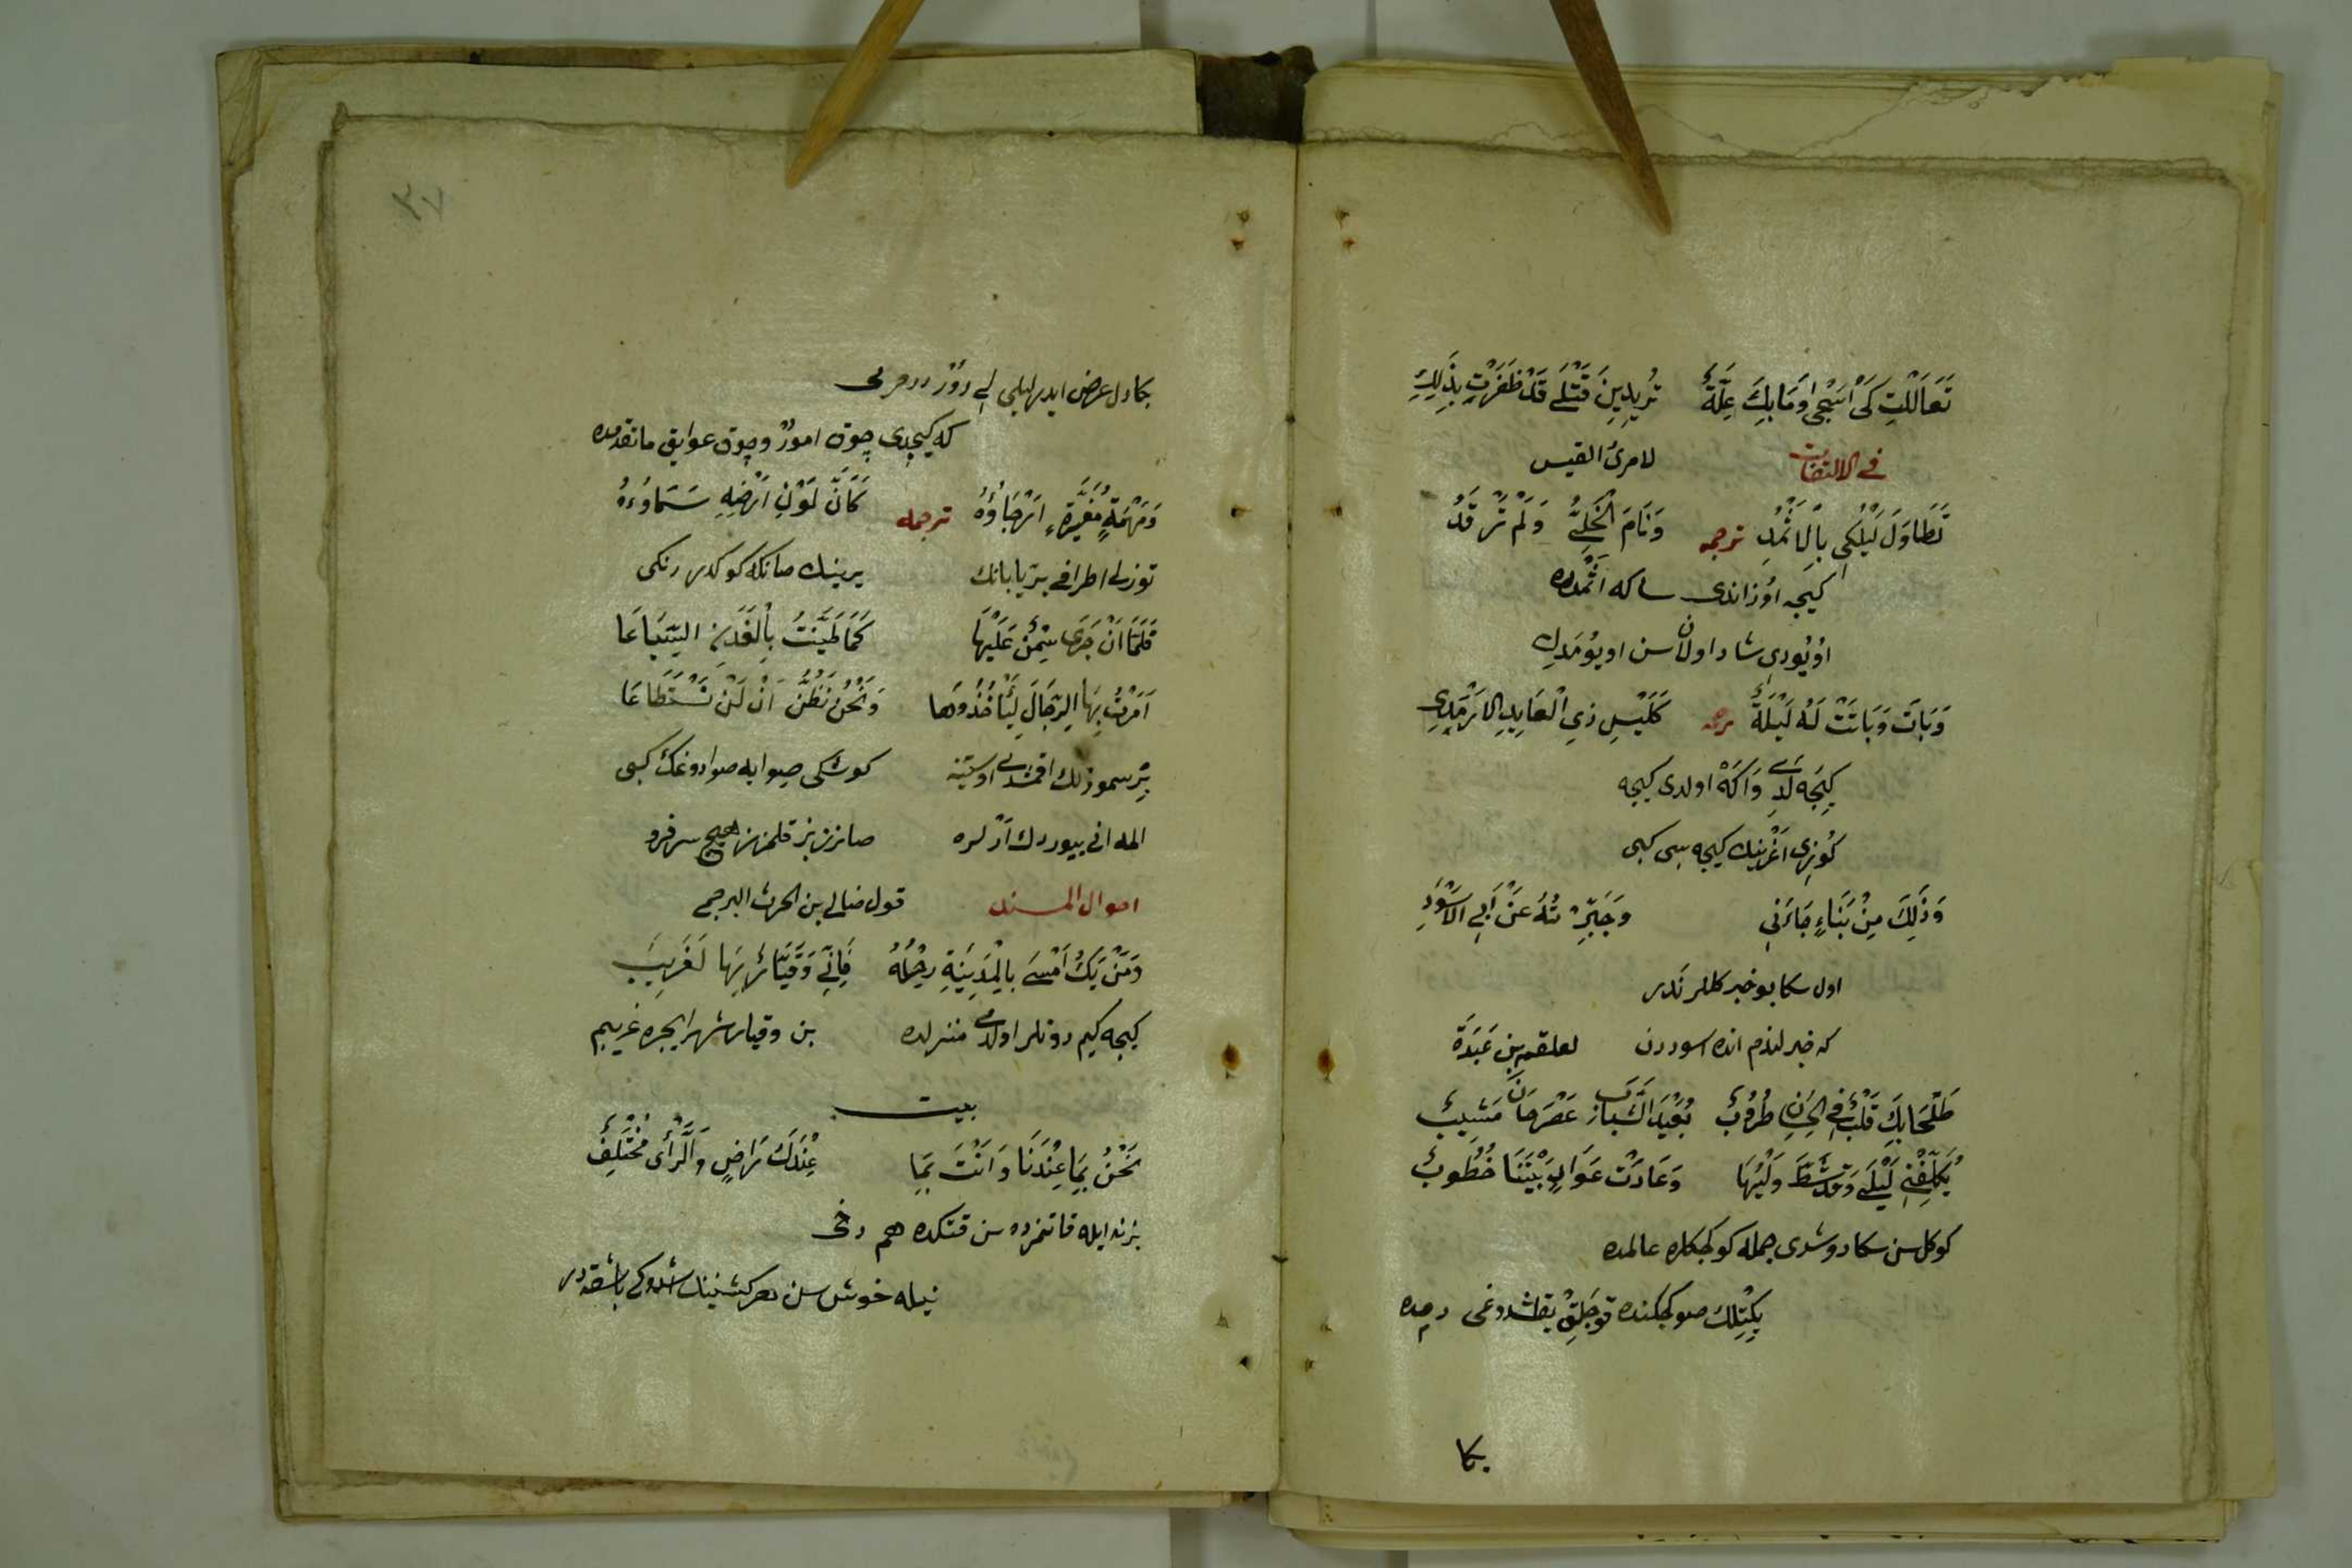 تَعَالَلْتِ كَىْ اَشْجٰى وَمَا بِكِ عِلَّةٌ تُرِيدِينَ قَتْلِى قَدْ ظَفَرْتِ بِذٰلِكِ
فى الالتفات لامرئ القيس
تَطَاوَلَ لَيْلُكَ بِالْاَثْمُدِ ترجمه وَنَامَ الْخَلِىُّ وَلَمْ تَرْقَدُ
كيجه اوُزاندى ساكه اَثْمُدده
اوُيُودى شاد اولان سن اويوُمَدِك
وَبَاتَ وَبَاتَتْ لَهُ لَيْلَةٌ ترجمه كَلَيْلِ ذِى الْعَايِرِ الْاَرْمَدِى
كيجه لَدى وَاكَهْ اولدى كيجه
كُوزى اَغْرينك كيجه سى كبى
وَذٰلِكَ مِنْ نَبَاءٍ جَاءَنِى وَخَبِّرْتُهُ عَنْ اَبِى الْاَسْوَدِ
اول سكا بو خبر كلمردر
كه خبرلندم انده اسوددن لعلقمه بن عَبَدَة
طَحَا بِكَ قَلْبٌ فِى الْحِسَانِ طَرُوبٌ بُعَيْدَ الشَّبَابِ عَصْرَ حَانَ مَشِيبُ
يُكَلِّفُنِى لَيْلَى وَقَدْ شَطَّ وَلْيُهَا وَعَادَتْ عَوَادٍ بَيْنَنَا خُطُوبُ
كوكل سن سكا دوشدى جمله كوكجكلره عالمده
يكِتلك صوكجكنده قوجلق يقلشدوغى دمده
بكا
٣٧
بكا دل عرض ايدر ليلى اى دور
كه كيچدى چوق امور و چوق عوايق ماتقدمده
وَمَهْمَهٍ مُغْبَرَّةٍ اَرْجَاؤُهُ ترجمه كَاَنَّ لَوْنَ اَرْضِهِ سَمَاؤُهُ
توزلى اطرافى بر بيابانك يرينك صانكه كوكدر رنكى
فَلَمَّا اَنْ جَرٰى سِمَنٌ عَلَيْهَا كَمَا طَيَّنْتَ بِالْفَدَنِ السِّيَاعَا
اَمَرْتُ بِهَا الرِّجَالَ لِيَأْخُذُوهَا وَنَحْنُ نَظُنُّ اَنْ لَنْ تُسْتَطَاعَا
بر سموزلك اقمشدى اوستنه كوشكى صيوايله صوادوغك كبى
المه انى بيوردك ارلره صانرز بز قلمز هيچ سرفرو
احوال المسند قول ضابى بن الحرث البرجمى
وَمَنْ يَكُ اَمْسٰى بِالْمَدِينَةِ رَحْلُهُ فَاِنِّى وَقَيَّارٌ بِهَا لَغَرِيبُ
كيجه كيم دونلر اولدى منزلده بن و قيار شهر ايجره غريبم
بيت
نَحْنُ بِمَا عِنْدَنَا وَاَنْتَ بِمَا عِنْدَكَ رَاضٍ وَالرَّأْىُ مُخْتَلِفُ
بز نه ايله قاتمزده سن قتكده هم دخى
نيله خوش سن هر كشينك باشقه در